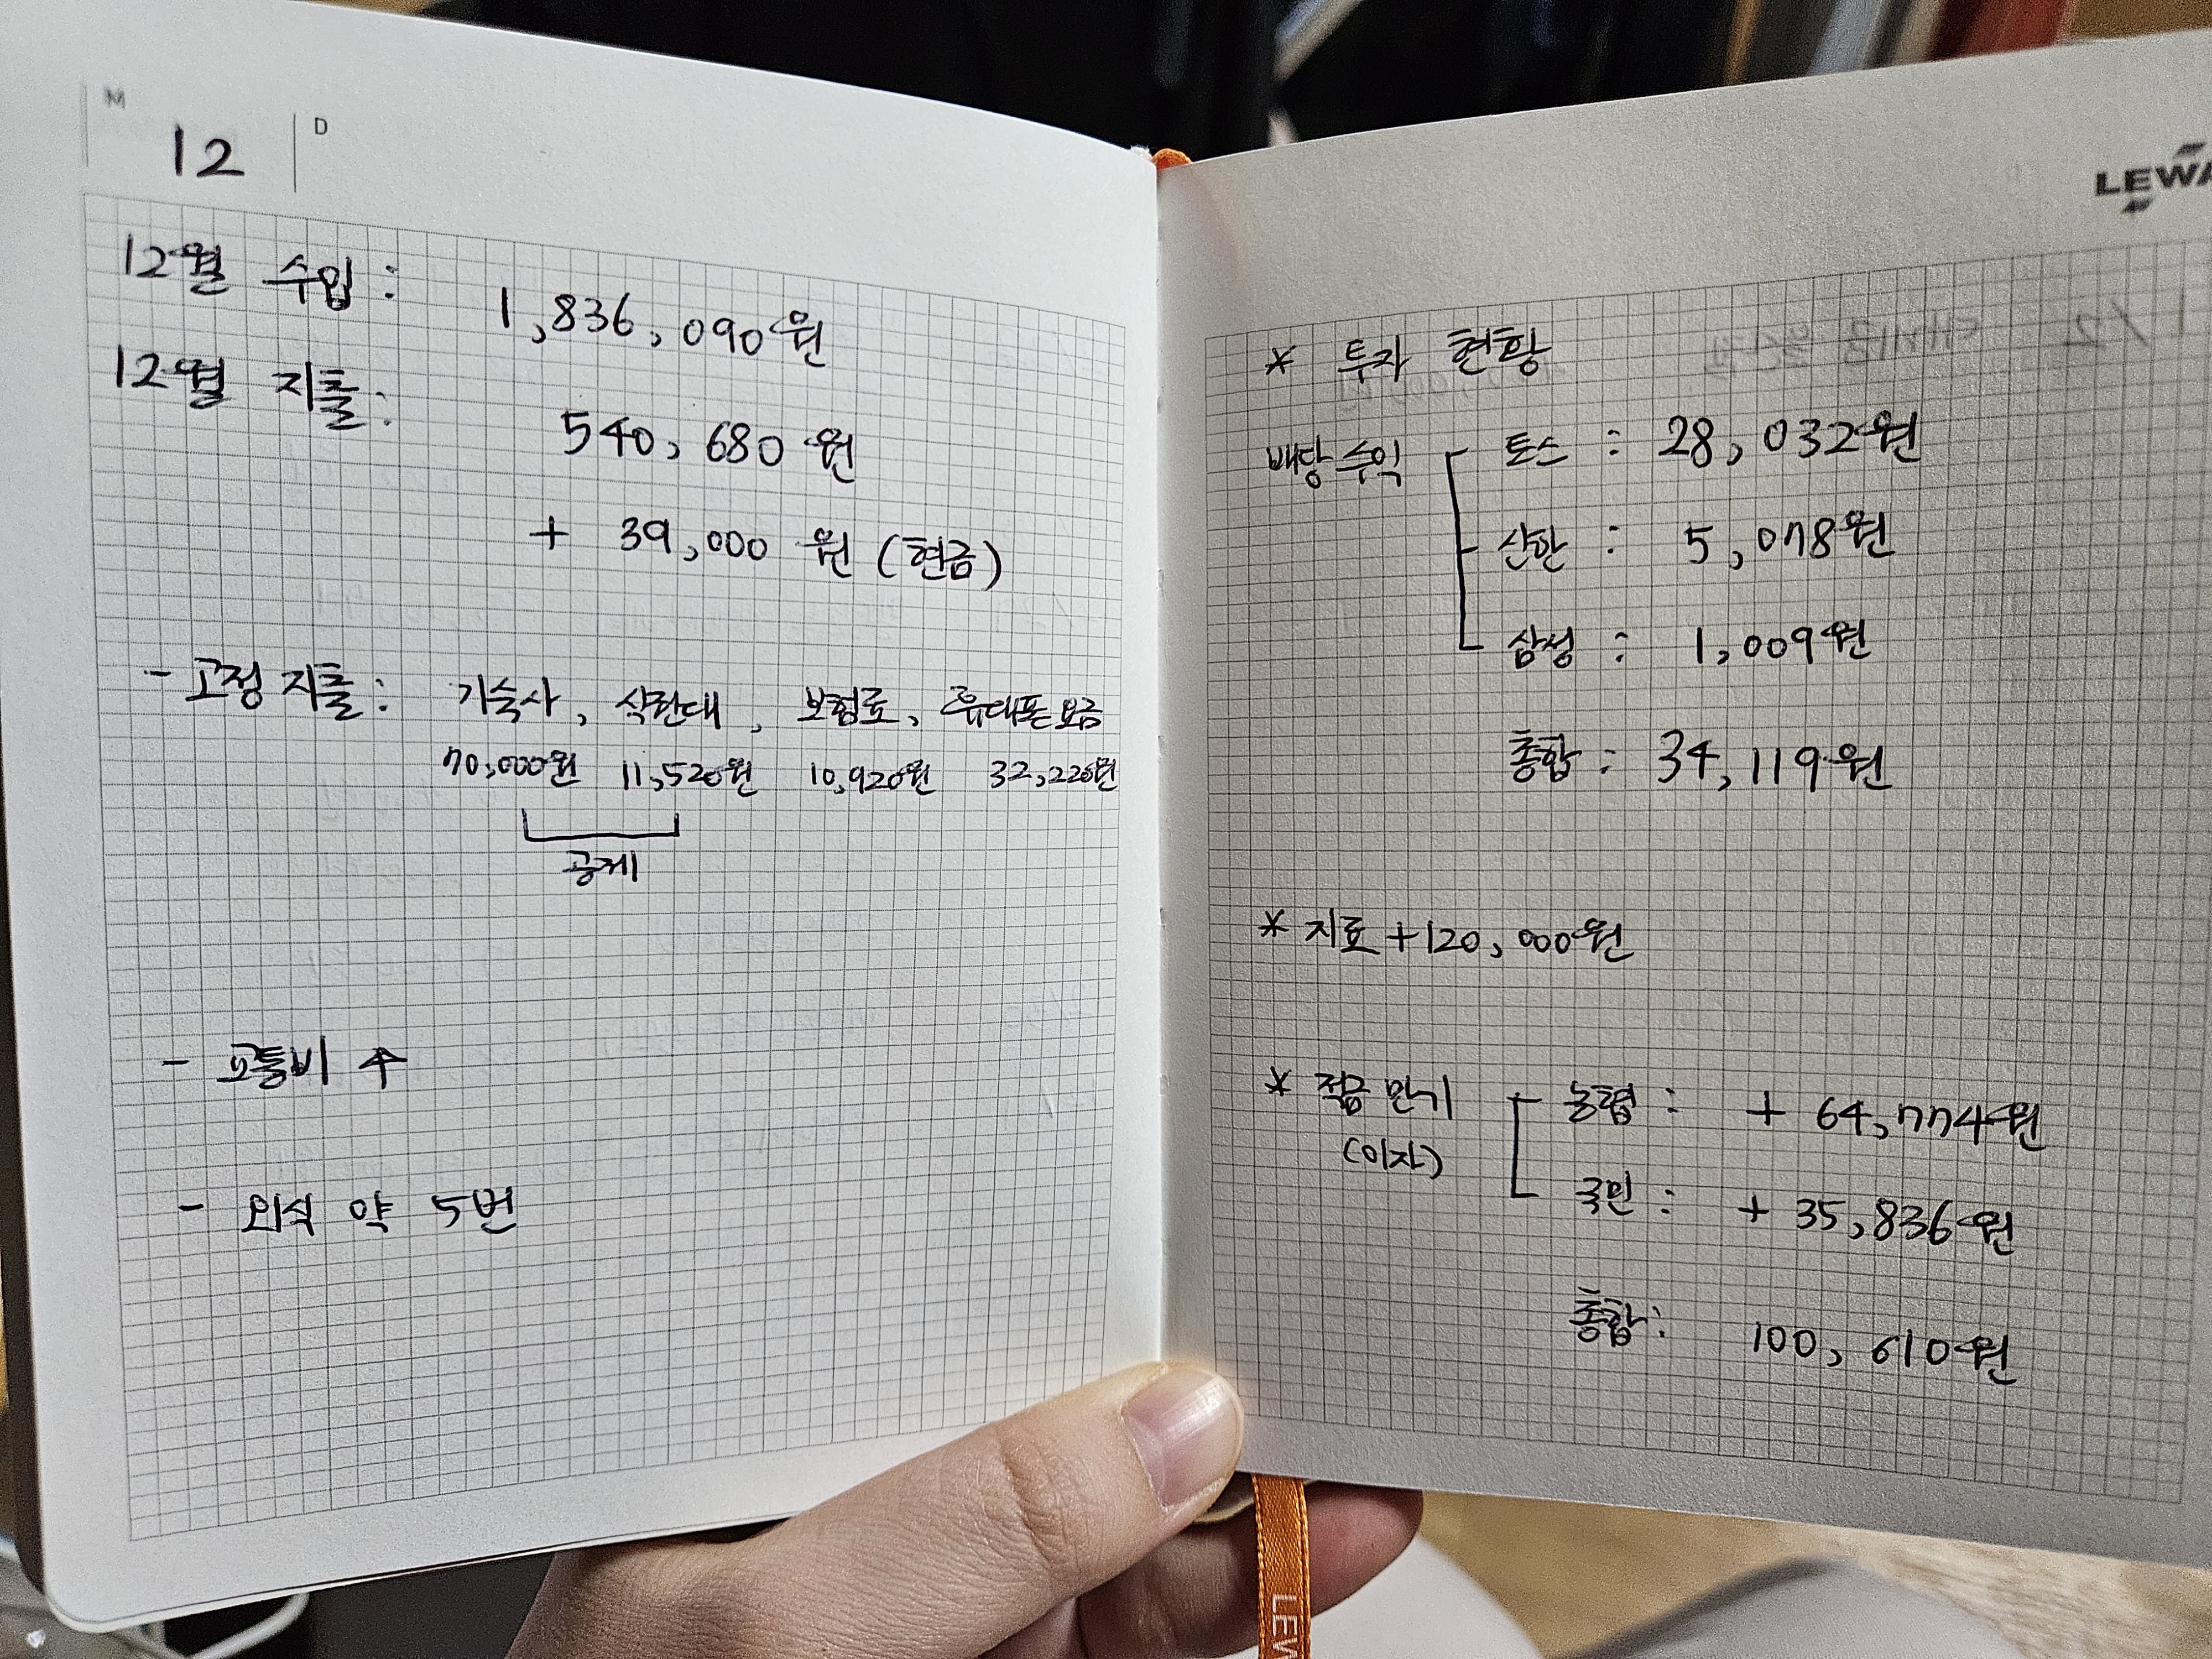 M 12 D
12월 수입 : 1,836,090원
12월 지출 : 540,680원
+ 39,000 원 (현금)
- 고정 지출 : 기숙사, 식권대, 보험료, 휴대폰 요금
70,000원 11,520원 10,920원 32,220원
공제
- 교통비 ↑
- 외식 약 5번
LEWA
* 투자 현황
배당 수익 토스 : 28,032원
신한 : 5,078원
삼성 : 1,009원
총합 : 34,119원
* 지로 +120,000원
* 적금 만기 농협 : + 64,774원
(이자)
국민 : + 35,836원
총합 : 100,610원
LEW